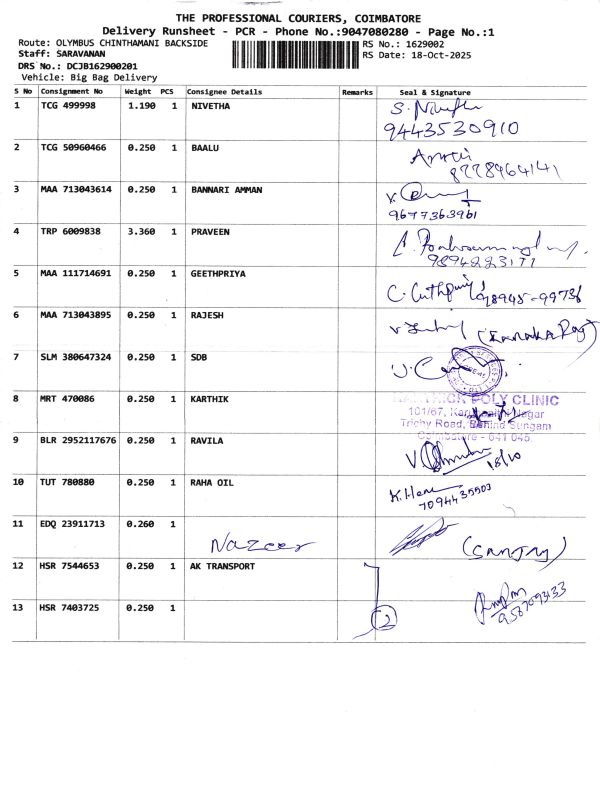 THE PROFESSIONAL COURIERS, COIMBATORE
Delivery Runsheet - PCR - Phone No.:9047080280 - Page No.:1
Route: OLYMBUS CHINTHAMANI BACKSIDE RS No.: 1629002
Staff: SARAVANAN RS Date: 18-Oct-2025
DRS No.: DCJB162900201
Vehicle: Big Bag Delivery
S No Consignment No Weight PCS Consignee Details Remarks Seal & Signature
1 TCG 499998 1.190 1 NIVETHA
9443530910
2 TCG 50960466 0.250 1 BAALU
8778964141
3 MAA 713043614 0.250 1 BANNARI AMMAN
9677363961
4 TRP 6009838 3.360 1 PRAVEEN
9894223177
5 MAA 111714691 0.250 1 GEETHPRIYA
98945-99736
6 MAA 713043895 0.250 1 RAJESH
7 SLM 380647324 0.250 1 SDB
8 MRT 470086 0.250 1 KARTHIK POLY CLINIC
101/67,
Trichy Road, Behind Sungam
Coimbatore - 641 045.
9 BLR 2952117676 0.250 1 RAVILA
18/10
10 TUT 780880 0.250 1 RAHA OIL
7094435503
11 EDQ 23911713 0.260 1
Nazeer (SANJAY)
12 HSR 7544653 0.250 1 AK TRANSPORT
9587093133
13 HSR 7403725 0.250 1 2